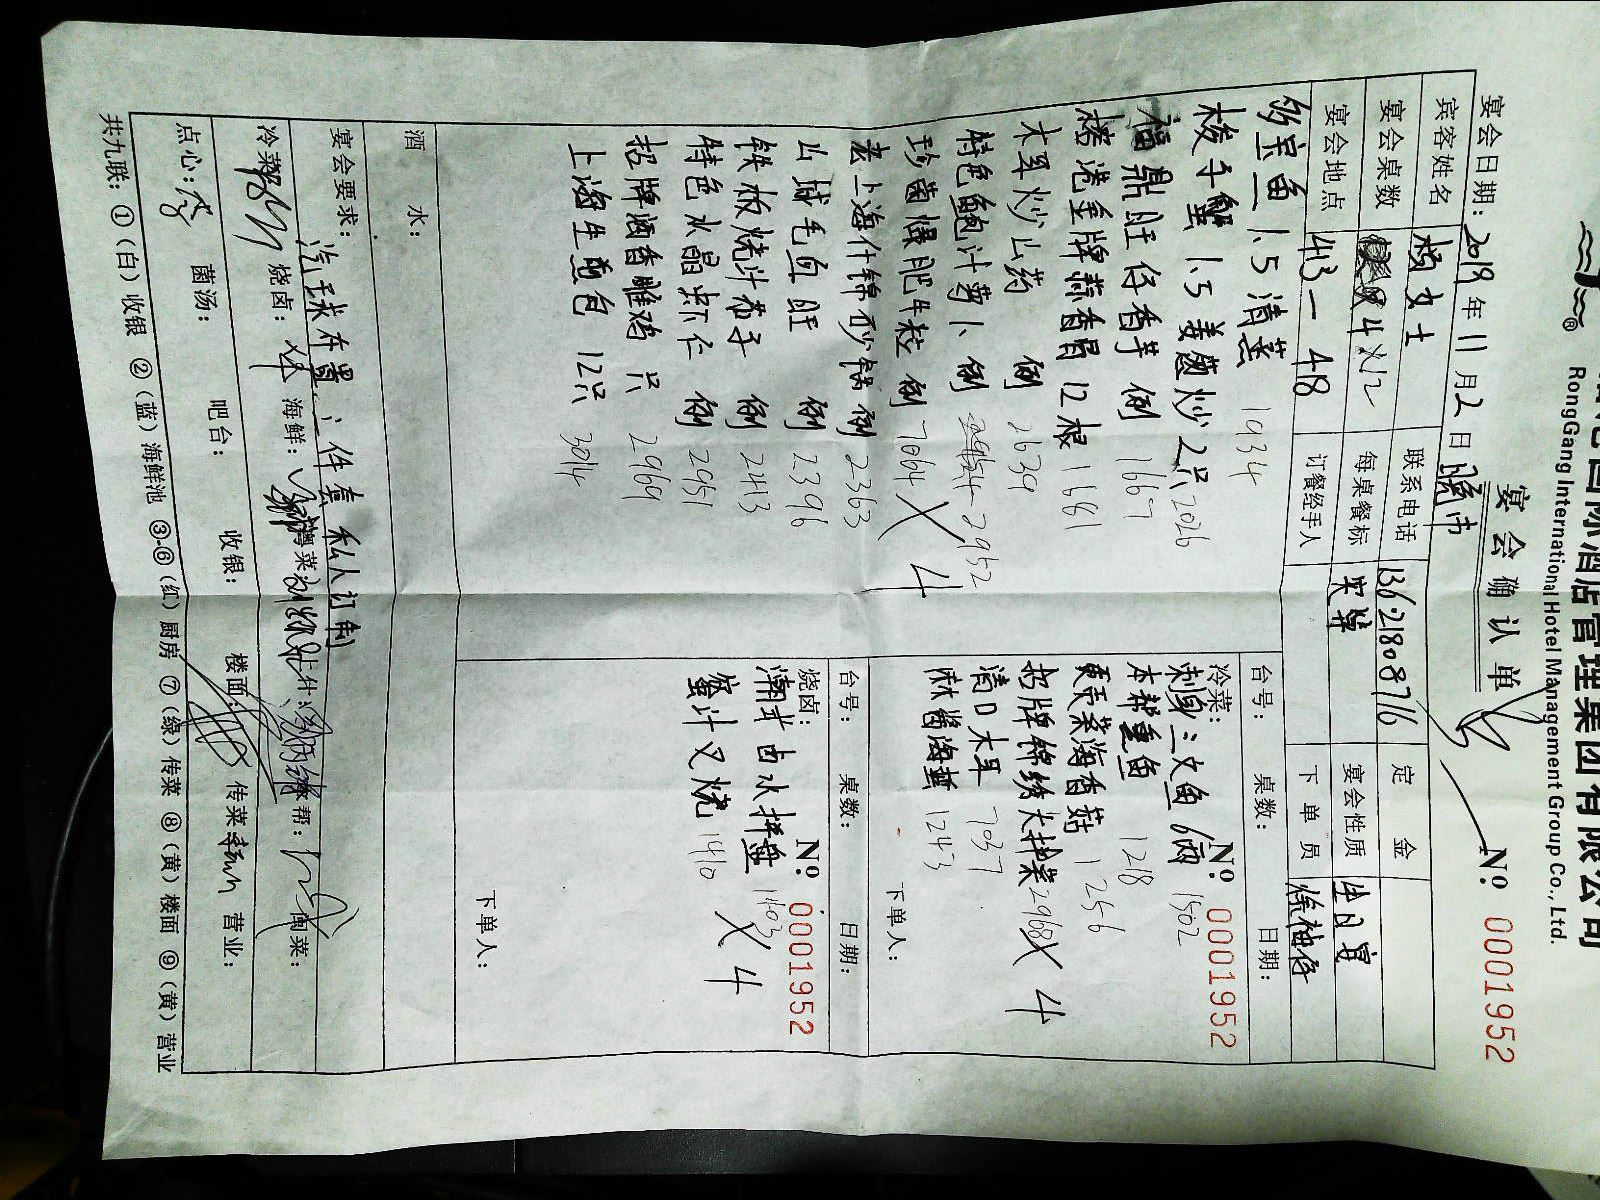 国际酒店管理集团有限公司
® RongGang International Hotel Management Group Co., Ltd.
宴会确认单
№ 00001952
宴会日期：2019年11月2日 晚市
宾客姓名 杨女士 联系电话 13621808716 定金
宴会桌数 4×12 每桌餐标 宴会性质 生日宴
宴会地点 413－418 订餐经手人 下单员 徐袖存
多宝鱼 1.5 清蒸 1934
梭子蟹 1.5 姜葱炒 2只 2026
福鼎旺仔香芋 例 1667
金牌蒜香骨 12根 1681
木耳炒山药 例 2639
特色鲍汁萝卜 例 2952
珍菌爆肥牛粒 例 7064 × 4
老上海什锦砂锅 例 2363
山城毛血旺 例 2396
铁板烧汁茄子 例 2413
特色水晶虾仁 例 2951
招牌酒香雕鸡 只 2969
上海生煎包 12只 3014
台号： 桌数： № 00001952 日期：
冷菜：
刺身三文鱼 6两 1502
本帮熏鱼 1218
海香菇 1256
招牌锦绣大拌菜 2968 × 4
清口木耳 7037
麻酱海蜇 1243
下单人：
台号： 桌数： № 00001952 日期：
烧卤：
潮式卤水拼盘 1403
蜜汁叉烧 1410 × 4
下单人：
酒水：
宴会要求： 汽球布置 三件套 私人订制
冷菜： 烧卤： 海鲜： 粤菜： 上什： 本帮： 闽菜：
点心： 菌汤： 吧台： 收银： 楼面： 传菜： 营业：
共九联：①（白）收银 ②（蓝）海鲜池 ③-⑥（红）厨房 ⑦（绿）传菜 ⑧（黄）楼面 ⑨（黄）营业